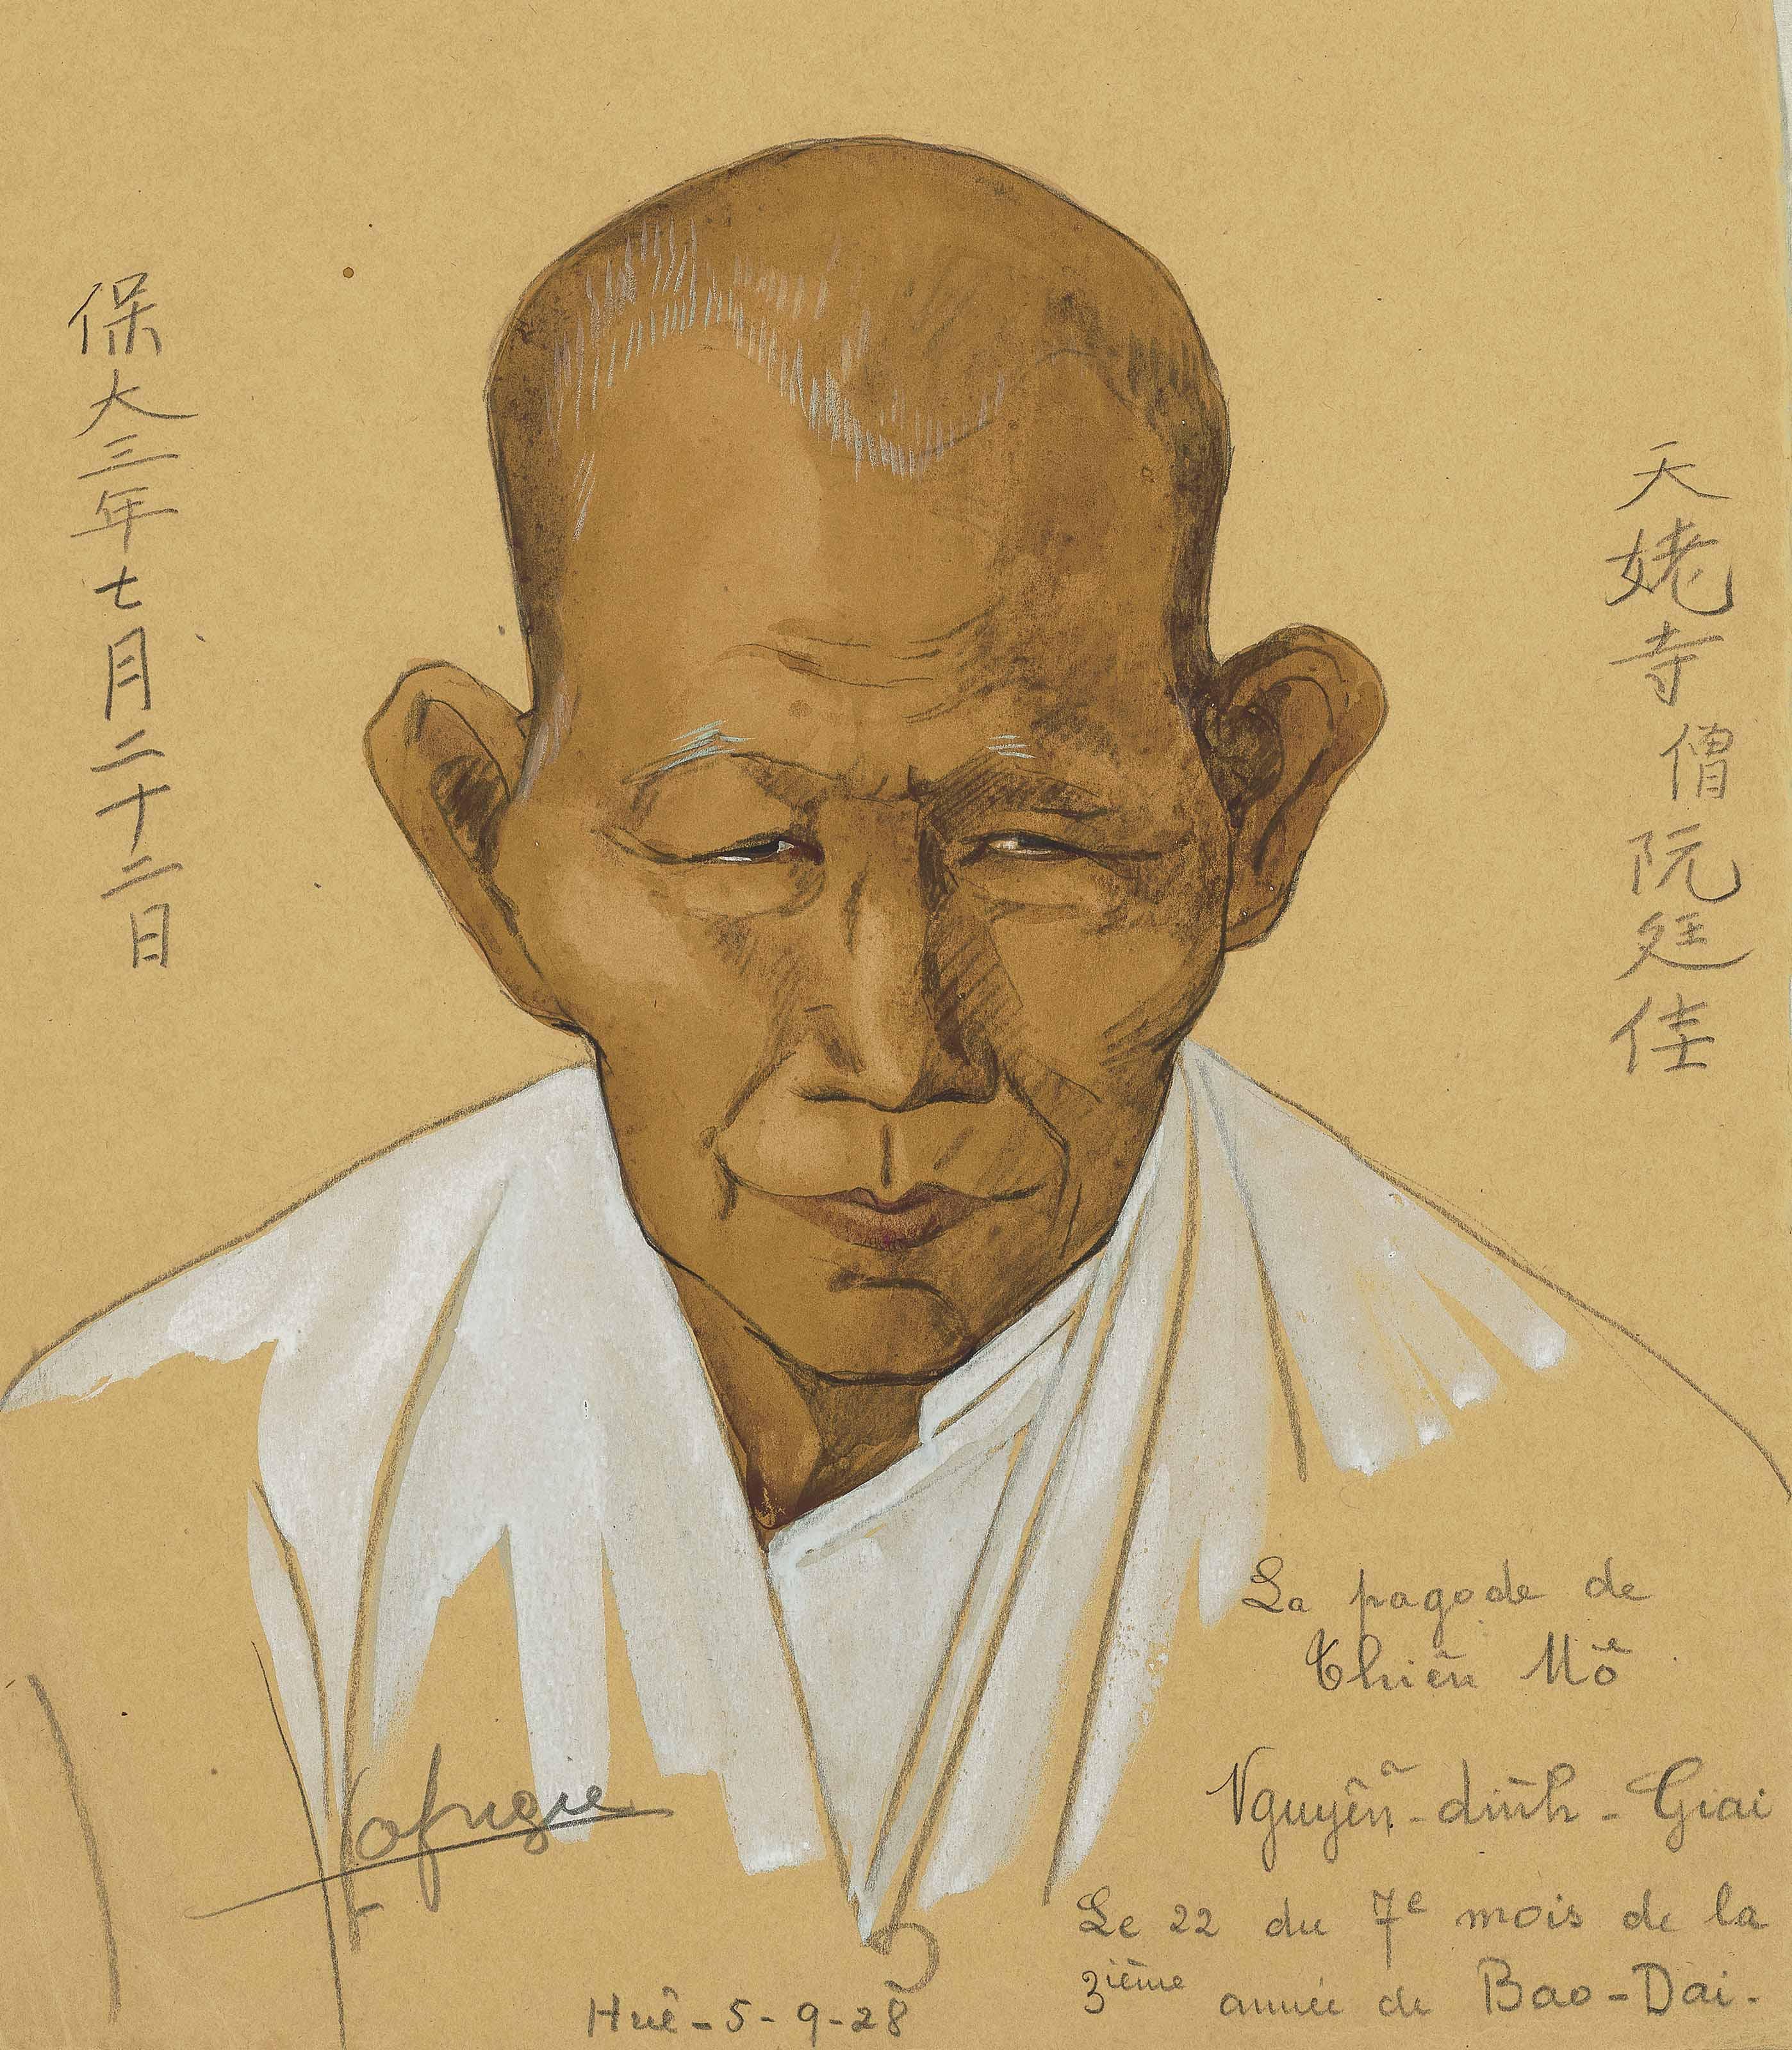 天姥寺僧阮廷佳
保大三年七月二十二日
La pagode de
Thiên Mô
Nguyên-dinh-Giai
Le 22 du 7e mois de la
3ième année de Bao-Dai.
Huê-5-9-28